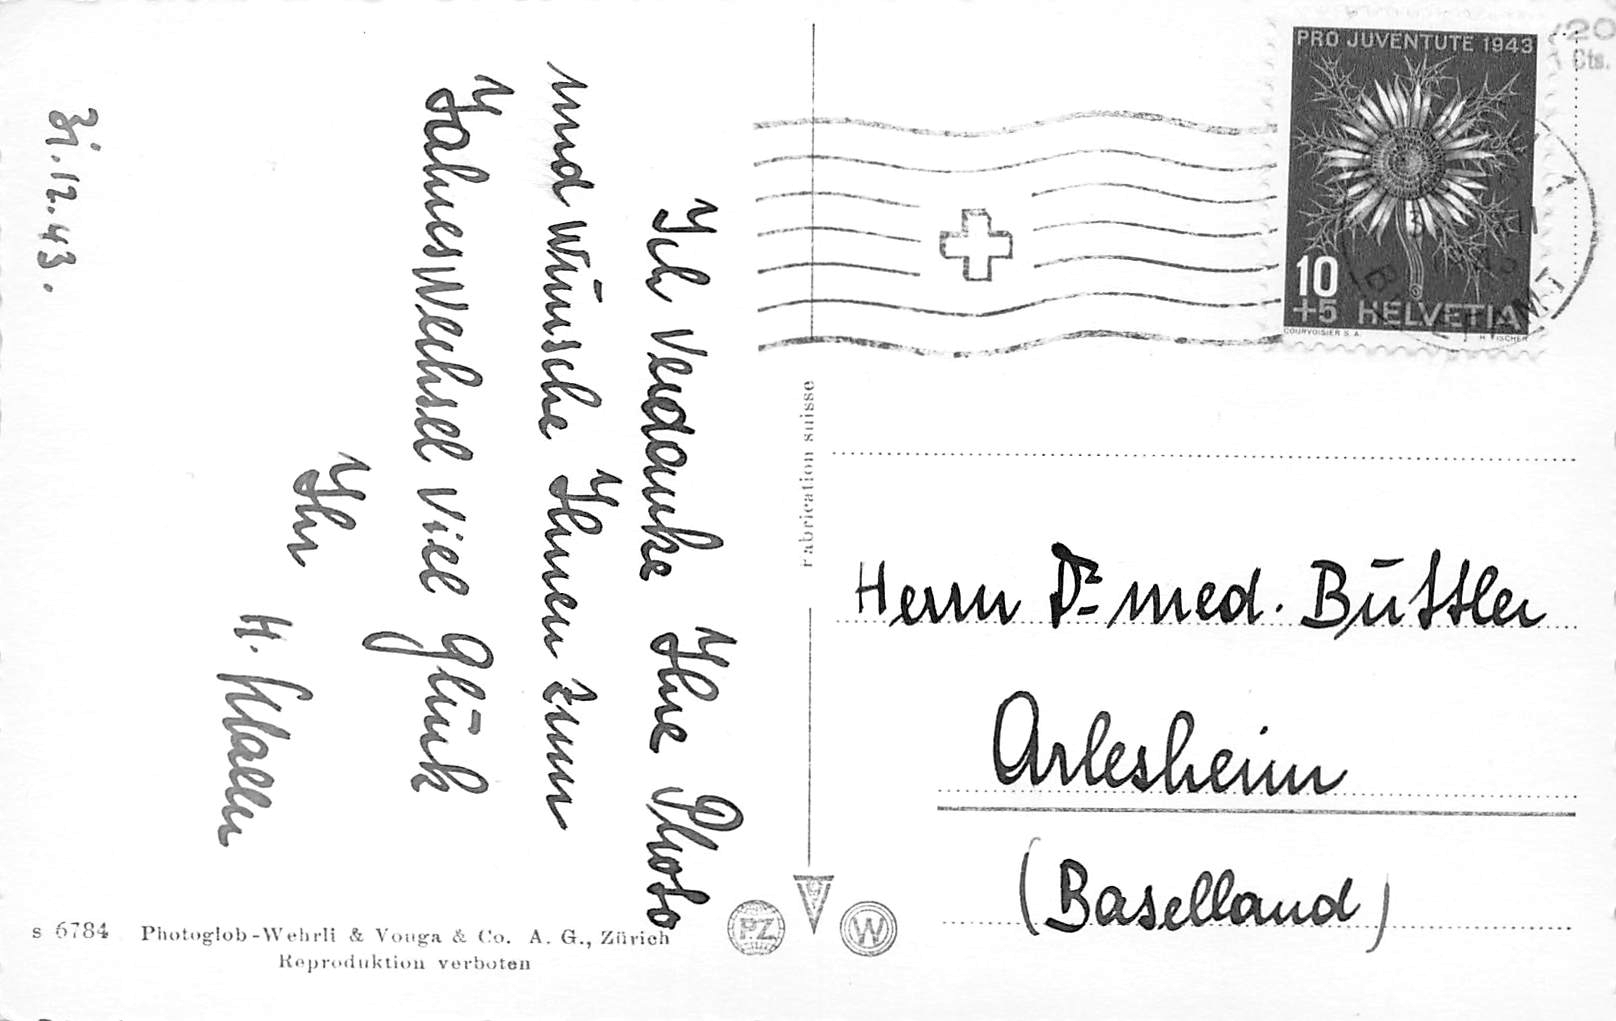 31.12.43.
Ich verdanke Ihre Photo
und wünsche Ihnen zum
Jahreswechsel viel Glück
Ihr
H.
PRO JUVENTUTE 1943
10
+5 HELVETIA
COURVOISIER S. A.
H. FISCHER
20
Cts.
fabrication suisse
Herrn Dr med. Büttler
Arlesheim
(Baselland)
s 6784 Photoglob-Wehrli & Vouga & Co. A. G., Zürich
Reproduktion verboten
PZ
W